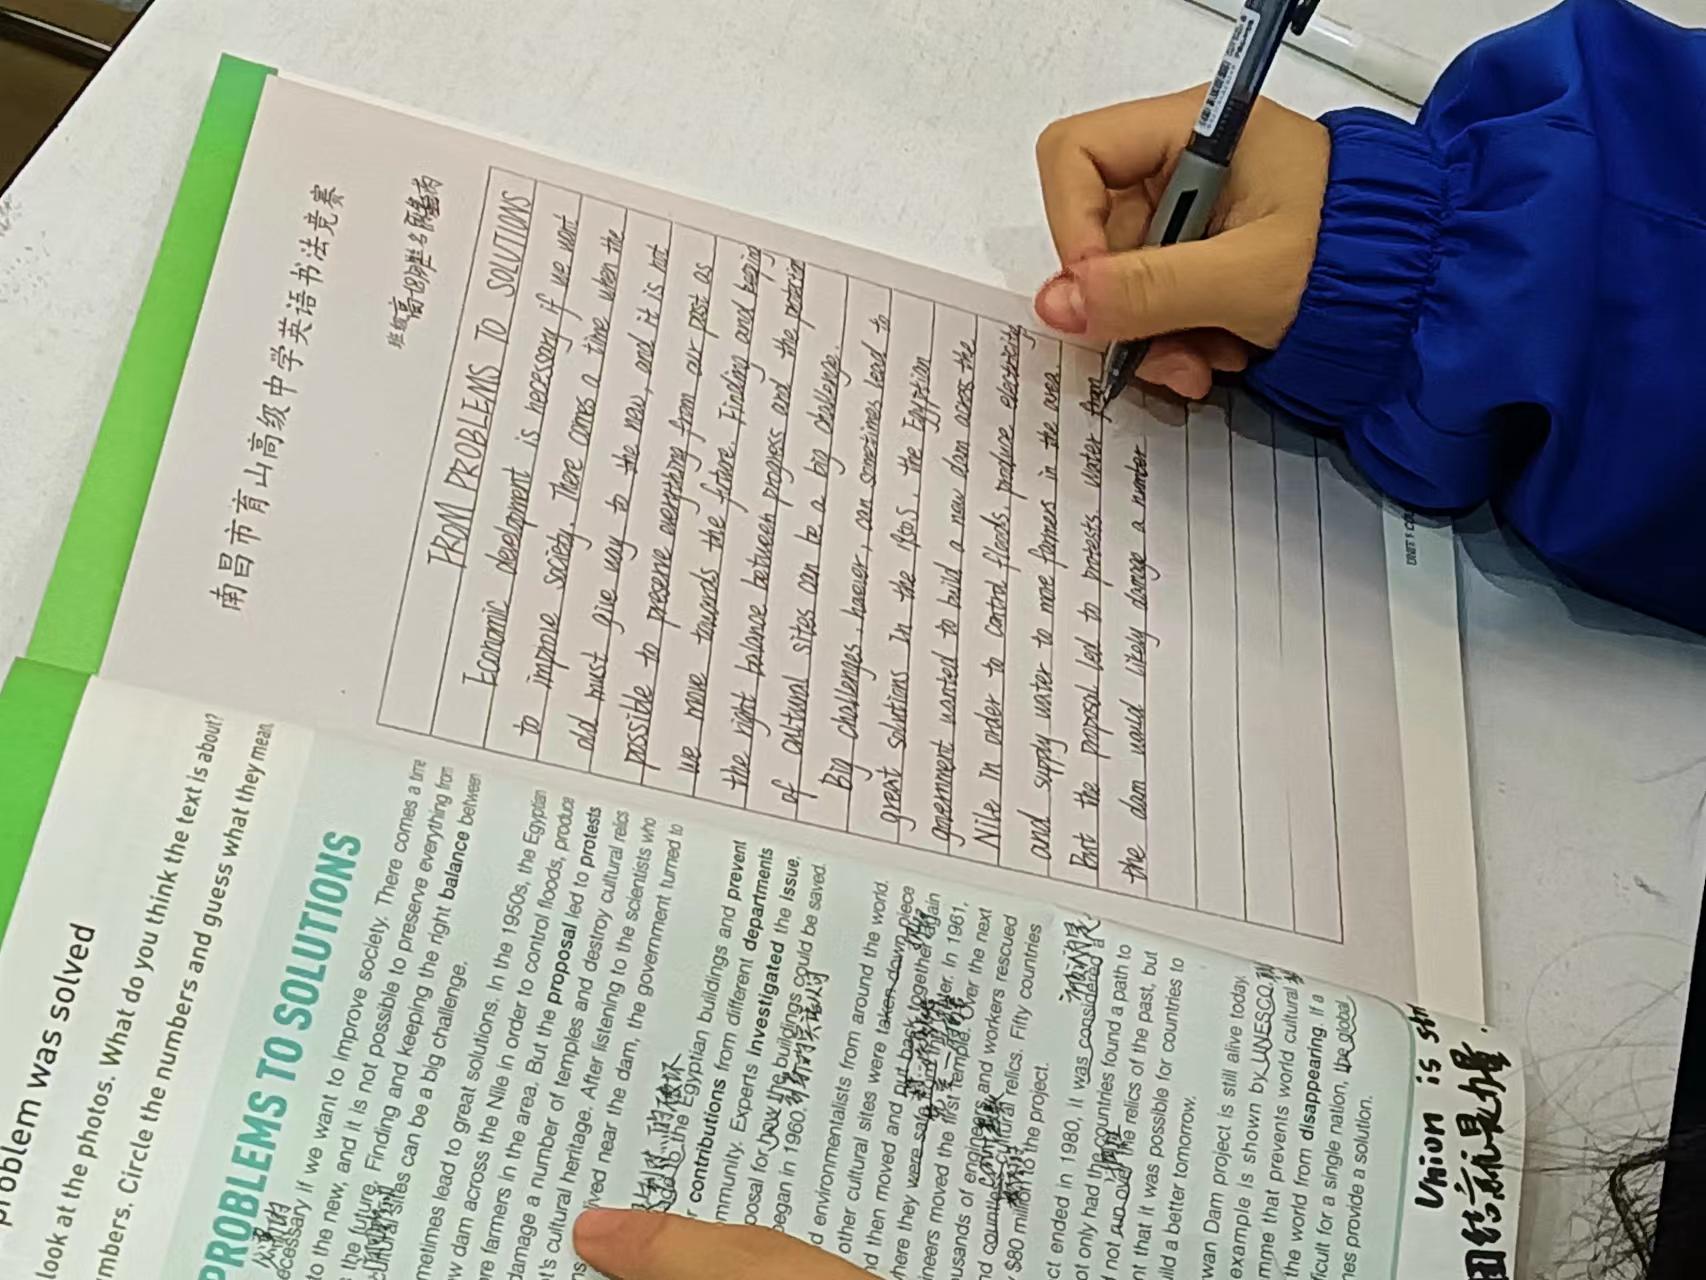 南昌市育山高级中学英语书法竞赛
班级 姓名
FROM PROBLEMS TO SOLUTIONS
Economic development is necessary if we want
to improve society. There comes a time when the
old must give way to the new, and it is not
possible to preserve everything from our past as
we move towards the future. Finding and keeping
the right balance between progress and the
of cultural sites can be a big challenge.
Big challenges, however, can sometimes lead to
great solutions In the 1950s, the Egyptian
government wanted to build a new dam across the
Nile in order to control floods, produce electricity
and supply water to more farmers in the area.
But the proposal led to protests. Water from
the dam would likely damage a number
problem was solved
look at the photos. What do you think the text is about?
mbers. Circle the numbers and guess what they mean.
PROBLEMS TO SOLUTIONS
ecessary if we want to improve society. There comes a time
to the new, and it is not possible to preserve everything from
the future. Finding and keeping the right balance between
cultural sites can be a big challenge.
metimes lead to great solutions. In the 1950s, the Egyptian
w dam across the Nile in order to control floods, produce
re farmers in the area. But the proposal led to protests
damage a number of temples and destroy cultural relics
t's cultural heritage. After listening to the scientists who
lived near the dam, the government turned to
the Egyptian buildings and prevent
r contributions from different departments
mmunity. Experts investigated the issue,
posal for how the buildings could be saved.
began in 1960.
d environmentalists from around the world.
other cultural sites were taken down piece
nd then moved and put back together again
where they were safe from the water. In 1961,
ineers moved the first temple. Over the next
usands of engineers and workers rescued
nd countless cultural relics. Fifty countries
y $80 million to the project.
ct ended in 1980, it was considered a
ot only had the countries found a path to
d not run over the relics of the past, but
nt that it was possible for countries to
uild a better tomorrow.
wan Dam project is still alive today.
example is shown by UNESCO,
mme that prevents world cultural
the world from disappearing. If a
ficult for a single nation, the global
nes provide a solution.
Union is
团结就是力量
UNIT 1